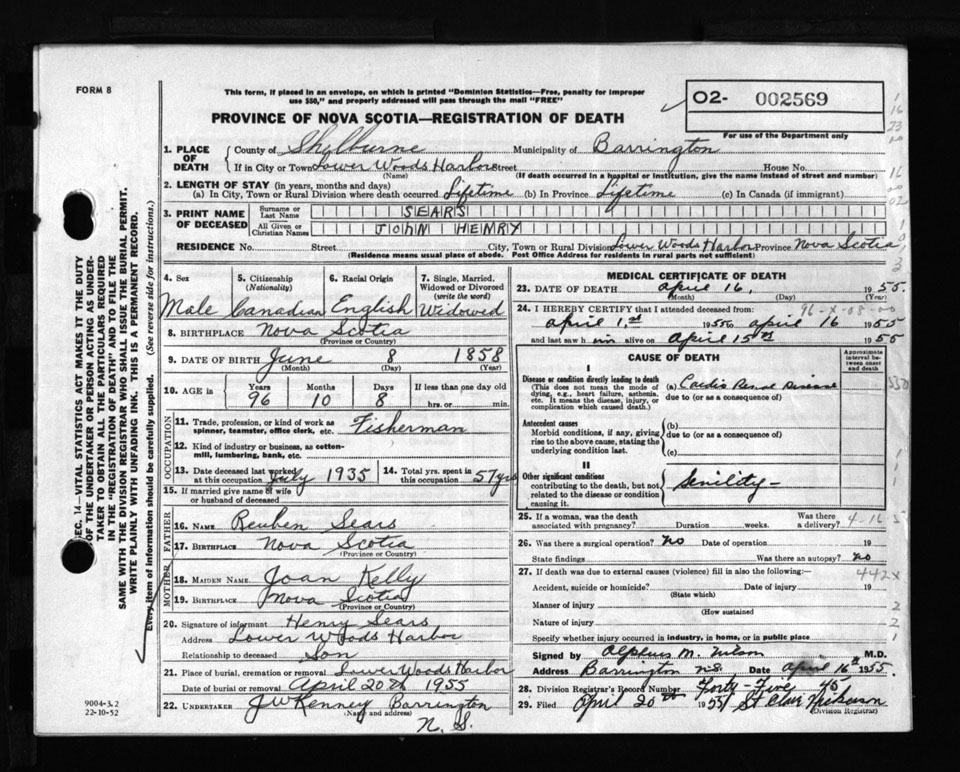 FORM 8
This form, if placed in an envelope, on which is printed "Dominion Statistics—Free, penalty for improper
use $50," and properly addressed will pass through the mail "FREE"
PROVINCE OF NOVA SCOTIA—REGISTRATION OF DEATH
02- 002569
For use of the Department only
1. PLACE OF DEATH
County of Shelburne Municipality of Barrington
If in City or Town Lower Woods Harbor Street House No.
(Name) (If death occurred in a hospital or institution, give the name instead of street and number)
2. LENGTH OF STAY (in years, months and days)
(a) In City, Town or Rural Division where death occurred Lifetime (b) In Province Lifetime (c) In Canada (if immigrant)
3. PRINT NAME OF DECEASED
Surname or Last Name SEARS
All Given or Christian Names JOHN HENRY
RESIDENCE No. Street City, Town or Rural Division Lower Woods Harbor Province Nova Scotia
(Residence means usual place of abode. Post Office Address for residents in rural parts not sufficient)
4. Sex
Male
5. Citizenship (Nationality)
Canadian
6. Racial Origin
English
7. Single, Married, Widowed or Divorced (write the word)
Widowed
8. BIRTHPLACE Nova Scotia
(Province or Country)
9. DATE OF BIRTH June 8 1858
(Month) (Day) (Year)
10. AGE in Years Months Days If less than one day old
96 10 8 hrs. or min.
OCCUPATION
11. Trade, profession, or kind of work as spinner, teamster, office clerk, etc. Fisherman
12. Kind of industry or business, as cotton-mill, lumbering, bank, etc.
13. Date deceased last worked at this occupation July 1935
14. Total yrs. spent in this occupation 57 yrs
15. If married give name of wife or husband of deceased
FATHER
16. NAME Reuben Sears
17. BIRTHPLACE Nova Scotia
(Province or Country)
MOTHER
18. MAIDEN NAME Joan Kelly
19. BIRTHPLACE Nova Scotia
(Province or Country)
20. Signature of informant Henry Sears
Address Lower Woods Harbor
Relationship to deceased Son
21. Place of burial, cremation or removal Lower Woods Harbor
Date of burial or removal April 20th 1955
22. UNDERTAKER JW Kenney Barrington
(Name and address)
N.S.
MEDICAL CERTIFICATE OF DEATH
23. DATE OF DEATH April 16, 1955.
(Month) (Day) (Year)
96-X-08-00
24. I HEREBY CERTIFY that I attended deceased from:
April 1st 1955 to April 16 1955
and last saw him alive on April 15th 1955
CAUSE OF DEATH
Approximate interval between onset and death
I
Disease or condition directly leading to death
(This does not mean the mode of dying, e.g., heart failure, asthenia, etc. It means the disease, injury, or complication which caused death.)
(a) Cardio Renal Disease
due to (or as a consequence of)
Antecedent causes
Morbid conditions, if any, giving rise to the above cause, stating the underlying condition last.
(b)
due to (or as a consequence of)
(c)
II
Other significant conditions
contributing to the death, but not related to the disease or condition causing it.
Senility -
25. If a woman, was the death associated with pregnancy? Duration weeks. Was there a delivery?
26. Was there a surgical operation? No Date of operation 19
State findings Was there an autopsy? No
27. If death was due to external causes (violence) fill in also the following:—
442X
Accident, suicide or homicide? Date of injury 19
(State which)
Manner of injury
(How sustained
Nature of injury
Specify whether injury occurred in industry, in home, or in public place
Signed by Alpheus M. Wilson M.D.
Address Barrington N.S. Date April 16th 1955.
28. Division Registrar's Record Number Forty-Five 45
29. Filed April 20th 1955 St Clair Nickerson
(Division Registrar)
SEC. 14—VITAL STATISTICS ACT MAKES IT THE DUTY
OF THE UNDERTAKER OR PERSON ACTING AS UNDER-
TAKER TO OBTAIN ALL THE PARTICULARS REQUIRED
IN THE "REGISTRATION OF DEATH" AND TO FILE THE
SAME WITH THE DIVISION REGISTRAR WHO SHALL ISSUE THE BURIAL PERMIT.
WRITE PLAINLY WITH UNFADING INK. THIS IS A PERMANENT RECORD.
Every item of information should be carefully supplied. (See reverse side for instructions.)
9004-3.2
22-10-52